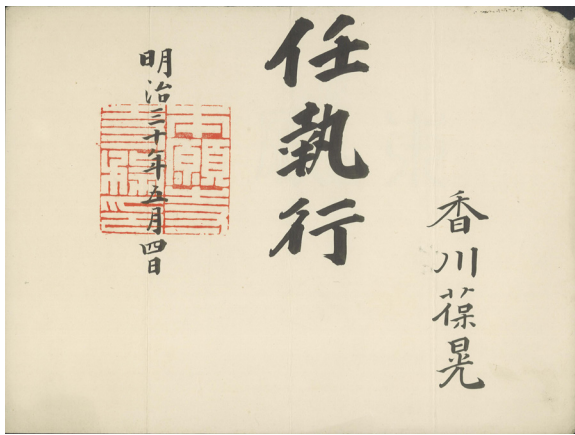 香川葆晃
任執行
明治三十年五月四日
本願寺